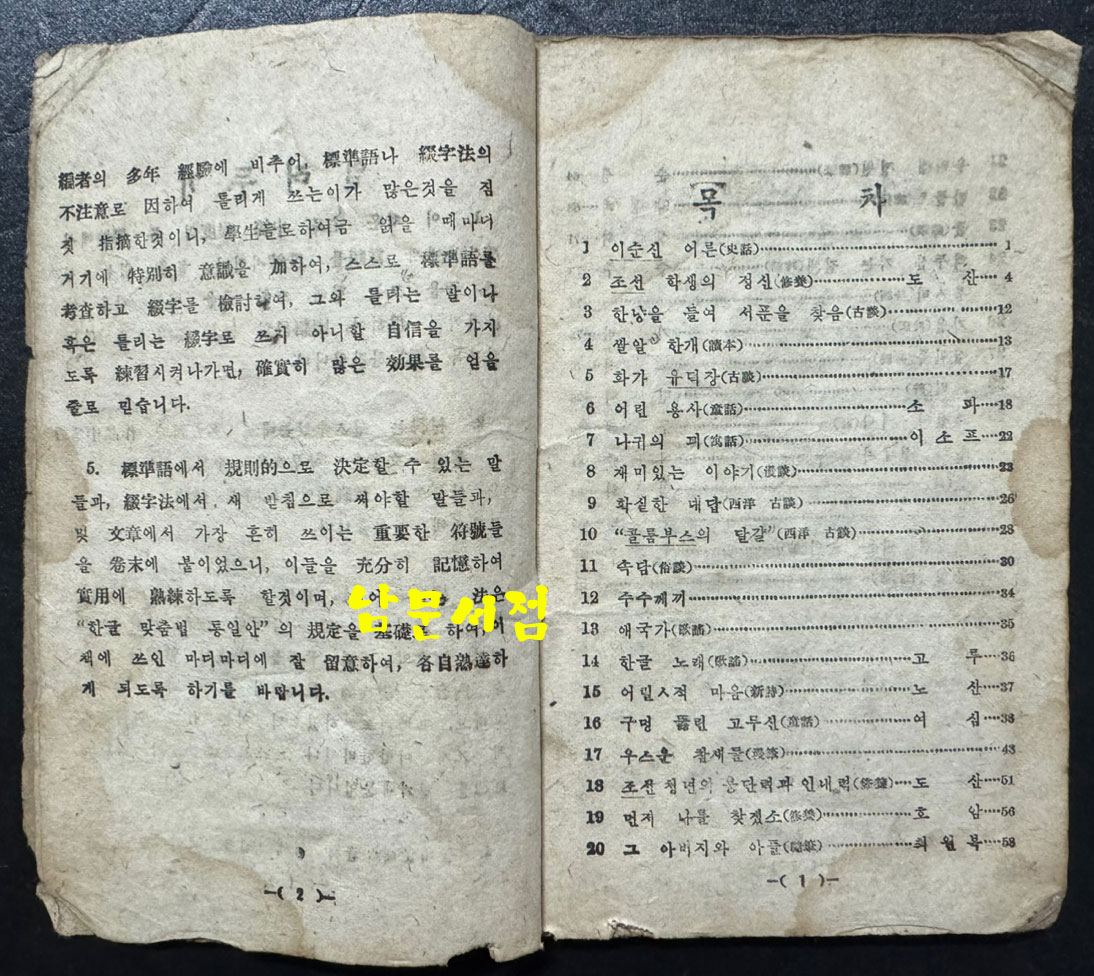 編者의 多年 經驗에 비추어, 標準語나 綴字法의
不注意로 因하여 틀리게 쓰는이가 많은것을 짐
짓 指摘한것이니, 學生들로하여금 읽을 때마다
거기에 特別히 意識을 加하여, 스스로 標準語를
考査하고 綴字를 檢討하여, 그와 틀리는 말이나
혹은 틀리는 綴字로 쓰지 아니할 自信을 가지
도록 練習시켜나가면, 確實히 많은 効果를 얻을
줄로 믿습니다.
5. 標準語에서 規則的으로 決定할 수 있는 말
들과, 綴字法에서 새 받침으로 써야할 말들과,
및 文章에서 가장 흔히 쓰이는 重要한 符號들
을 卷末에 붙이었으니, 이들을 充分히 記憶하여
實用에 熟練하도록 할것이며, 法은
"한글 맞춤법 통일안"의 規定을 基礎로 하여, 이
책에 쓰인 마디마디에 잘 留意하여, 各自熟達하
게 되도록 하기를 바랍니다.
—( 2 )—
남문서점
목 차
1 이순신 어른(史話) 1
2 조선 학생의 정신(修養) 도 산 4
3 한냥을 들여 서푼을 찾음(古談) 12
4 쌀알 한개(讀本) 13
5 화가 유덕장(古談) 17
6 어린 용사(童話) 소 파 18
7 나귀의 꾀(寓話) 이 소 프 22
8 재미있는 이야기(漫談) 23
9 확실한 대답(西洋 古談) 26
10 "콜룸부스의 달걀"(西洋 古談) 28
11 속담(俗談) 30
12 수수께끼 34
13 애국가(歌謠) 35
14 한글 노래(歌謠) 고 루 36
15 어릴ㅅ적 마음(新詩) 노 산 37
16 구멍 뚫린 고무신(童話) 여 심 38
17 우스운 참새들(漫筆) 43
18 조선 청년의 용단력과 인내력(修養) 도 산 51
19 먼저 나를 찾겠소(修養) 호 암 56
20 그 아버지와 아들(隨筆) 최 원 복 58
—( 1 )—